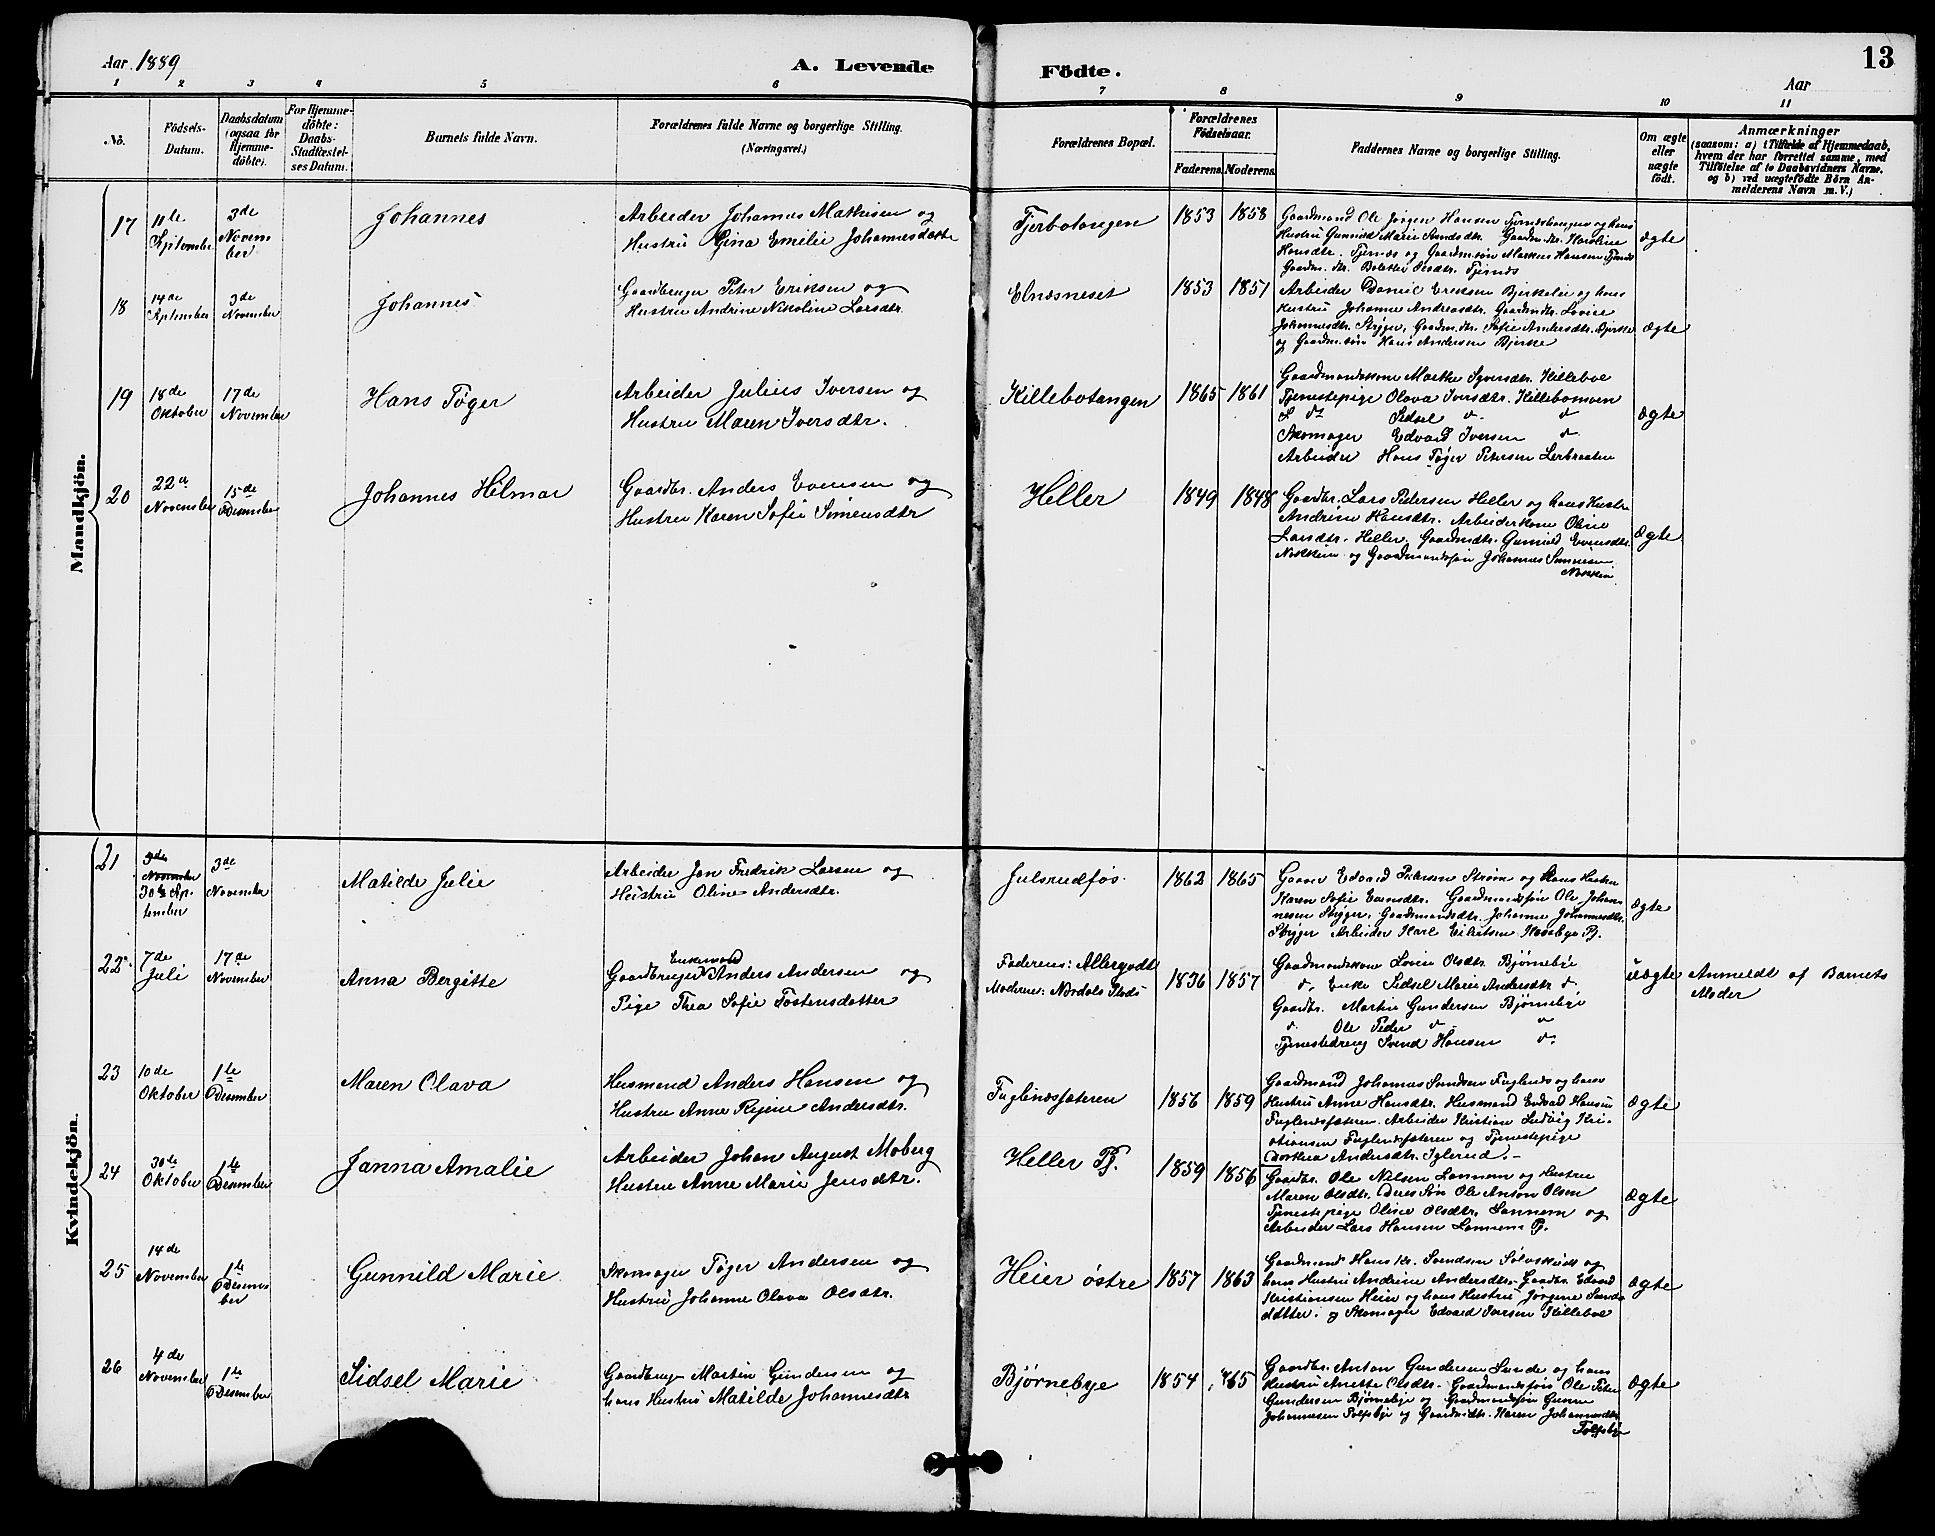 Aar. 1889
A. Levende
Födte.
Aar
13
1 2 3 4 5 6 7 8 9 10 11
No.
Födsels-
Datum.
Daabsdatum
(ogsaa for
Hjemme-
döbte).
For Hjemme-
döbte:
Daabs-
Stadfæstel-
ses Datum.
Barnets fulde Navn.
Forældrenes fulde Navne og borgerlige Stilling.
(Næringsvei.)
Forældrenes Bopæl.
Forældrenes
Födselsaar.
Faderens. Moderens.
Faddernes Navne og borgerlige Stilling.
Om ægte
eller
uægte
födt.
Anmærkninger
(saasom: a) i Tilfælde af Hjemmedaab,
hvem der har forrettet samme, med
Tilföielse af to Daabsvidners Navne.
og b) ved uægtefödte Börn An-
melderens Navn m. V.)
Mandkjön.
17
11te
September
3de
Novem
ber
Johannes
Arbeider Johannes Mathisen og
Hustru Gina Emilie Johannesdatte
Tjerbotangen
1853 1858
Gaardmand Ole Jörgen Hansen og hans
Hustru Gunnild Marie Gaardm.dtr. Karoline
Hansdtr. Tjernæs og Gaardm.søn Markus Hansen Tjernæs
Gaardm. dtr. Olsdtr. Tjernæs
ægte
18
14de
September
3de
November
Johannes
Gaardbruger Peter Eriksen og
Hustru Andrine Nikoline Larsdtr.
Elnæsneset
1853 1851
Arbeider Daniel Eriksen Bjerkelie og hans
Hustru Johanne Andersdtr. Gaardmdtr. Lovise
Johannesdtr. Stryger, Gaardm.dtr. Sofie Andersdtr. Bjerke
og Gaardm.søn Hans Andersen Bjerke
ægte
19
18de
Oktober
17de
November
Hans Töger
Arbeider Julius Iversen og
Hustru Maren Iversdtr.
Killebotangen
1865 1861
Gaardmandskone Marthe Syversdtr. Killeboe
Tjenestepige Olava Iversdtr. Killebomoen
do Sidsel do do
Skomager Edvard Iversen do
Arbeider Hans Töger Petersen Lerbraaten
ægte
20
22de
November
15de
Desember
Johannes Hilmar
Gaardbr. Anders Evensen og
Hustru Karen Sofie Simensdtr
Heller
1849 1848
Gaardbr. Lars Pedersen Heller og hans Hustru
Andrine Hansdtr. Arbeiderkone Oline
Larsdtr. Heller. Gaardmdtr. Gunild Evensdtr.
Nokkim og Gaardmandssøn Johannes Simensen
Nokkim
Ægte
Kvindekjön.
21
3de
November
30te Sep-
tember
3de
November
Matilde Julie
Arbeider Jon Fredrik Larsen og
Hustru Oline Andersdtr.
Julsrudfos.
1862 1865
Edvard Pedersen Strøm og Hans Hustru
Karen Sofie Evensdtr. Gaardmandssøn Ole Johan-
nesen Stryger, Gaardmandsdtr. Johanne Johannesdtr.
Stryger Arbeider Karl Eilertsen Haabye Pl.
Ægte
22.
7de
Juli
17de
November
Anna Bergitte
Enkemand
Gaardbruger Anders Andersen og
Pige Thea Sofie Tostensdatter
Faderens: Allergodt
Moderens: Nordals Plads
1836 1857
Gaardmandskone Lovise Olsdtr. Bjørnebye
do Enke Sidsel Marie Andersdtr do
Gaardbr. Martin Gundersen Bjørnebye
do Ole Peder do do
Tjenestedreng Svend Hansen do
Uægte
Anmeldt af Barnets
Moder
23
10de
Oktober
1te
Desember
Maren Olava
Husmand Anders Hansen og
Hustru Anne Rejine Andersdtr.
Fuglenæsfæteren
1856 1859
Gaardmand Johannes Svendsen Fuglenæs og hans
Hustru Anne Hansdtr. Husmand Edvard Hansen
Arbeider Kristian Ludvig Kri-
stiansen og Tjenestepige
Dorthea Andersdtr. Iglerud.
Ægte
24
30te
Oktober
1te
Desember
Janna Amalie
Arbeider Johan August Moberg
Hustru Anne Marie Jensdtr.
Heller Pl.
1859 1856
Gaardbr. Ole Nilsen Lonnem og Hustru
Maren Olsdtr. Deres Søn Ole Anton Olsen
Tjenestepige Oline Olsdtr. Lonnem og
Arbeider Lars Hansen Lonnem Pl.
Ægte
25
14de
November
1te
Desem
ber
Gunnild Marie
Skomager Töger Andersen og
Hustru Johanne Olava Olsdtr.
Heier østre
1857 1863
Gaardmand Hans Kr. Svendsen Sølvskudt og
hans Hustru Andrine Andersdtr. Gaardbr. Edvard
Kristiansen Heier og hans Hustru Jørgine Svends
datter. og Skomager Edvard Iversen Killeboe
Ægte
26
4de
November
1te
Desember
Sidsel Marie
Gaardbruger Martin Gundersen og
hans Hustru Matilde Johannesdtr
Bjørnebye
1854 65
Gaardbr. Anton Gundersen Sunde og hans
Hustru Anette Olsdtr. Gaardmandssøn Ole Peter
Gundersen Bjørnebye og Gaardmandssøn Gunne
Johannesen Tolfsbye og Gaardmdtr. Karen Johannesdtr
Tolfsbye
Ægte